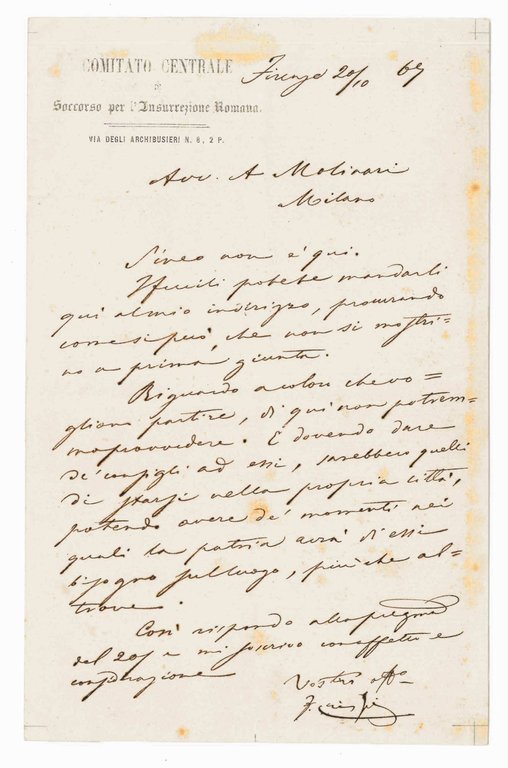 COMITATO CENTRALE
DI
Soccorso per l'Insurrezione Romana.
VIA DEGLI ARCHIBUSIERI N. 8, 2 P.
Firenze 20/10 67
Avv. A Molinari
Milano
Sineo non è qui.
I fucili potete mandarli
qui al mio indirizzo, procurando
come si può, che non si mostri-
no a prima giunta.
Riguardo a coloro che vo=
gliono partire, di qui non potrem=
mo provvedere. E dovendo dare
de' consigli ad essi, sarebbero quelli
di starsi nella propria città,
potendo avere de' momenti nei
quali la patria avrà di essi
bisogno sul luogo, più che al=
trove.
Così rispondo alla pregma
del 20 e mi soscrivo con affetto e
considerazione
Vostro affo
F. Crispi